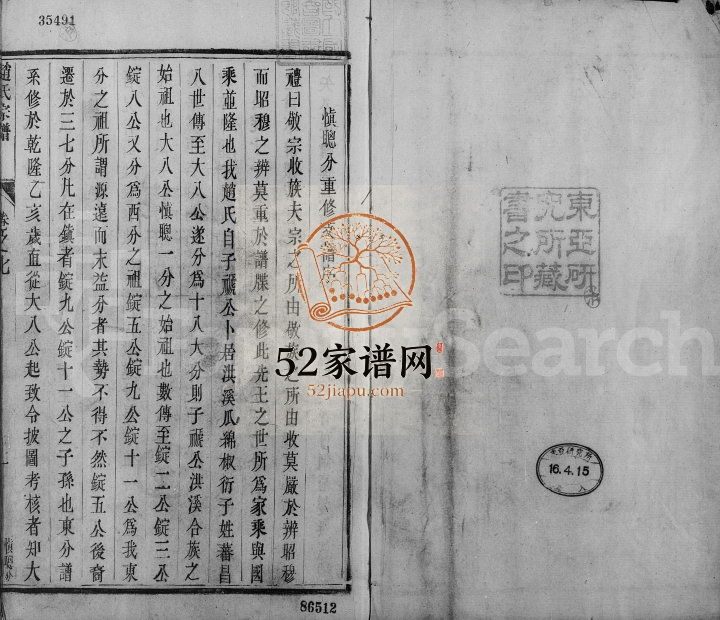 35491
慎聰分重修
禮曰敬宗收族夫宗之所由敬族之所由收莫嚴於辨昭穆
而昭穆之辨莫重於譜牒之修此先王之世所爲家乘與國
乘並隆也我趙氏自子禠公卜居洪溪瓜綿椒衍子姓蕃昌
八世傳至大八公遂分爲十八大分則子禠公洪溪合族之
始祖也大八公慎聰一分之始祖也數傳至錠二公錠三公
錠八公又分爲西分之祖錠五公錠九公錠十一公爲我東
分之祖所謂源遠而末益分者其勢不得不然錠五公後裔
遷於三七分凡在鎮者錠九公錠十一公之子孫也東分譜
系修於乾隆乙亥歲直從大八公起致令披圖考核者知大
趙氏宗譜
卷之七
慎聰分
86512
東亞研
究所藏
書之印
16.4.15
52家谱网
52jiapu.com
Search